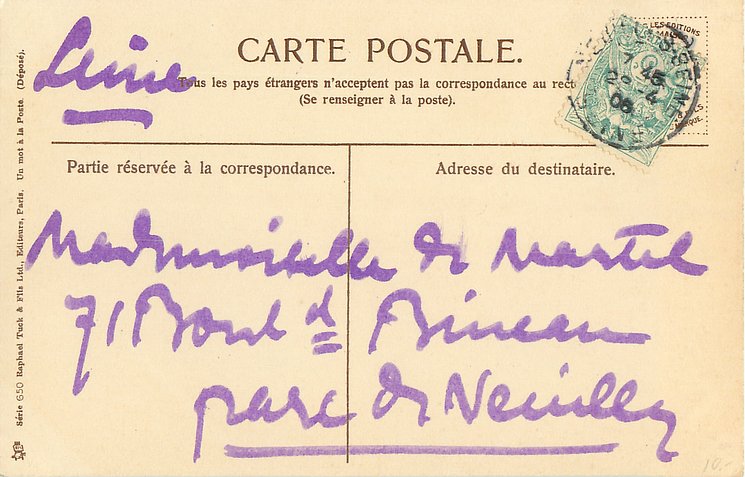 LES EDITIONS
CARTE POSTALE.
Seine
Tous les pays étrangers n'acceptent pas la correspondance au recto
(Se renseigner à la poste).
Partie réservée à la correspondance.
Adresse du destinataire.
Mademoiselle de Martel
71 Boul d Bineau
parc de Neuilly
Série 650 Raphael Tuck & Fils Ltd., Editeurs, Paris. Un mot à la Poste. (Déposé).
7 45
06
10.-